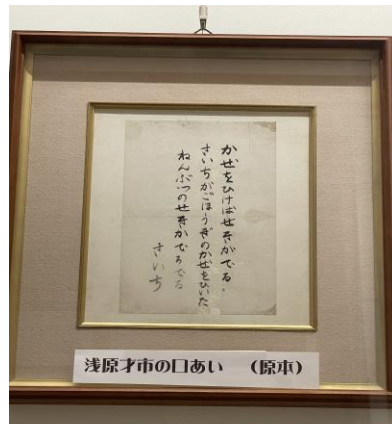 かぜをひけばせきがでる.
さいちがごほうぎのかぜをひいた
ねんぶつのせきがでるでる
さいち
浅原才市の口あい (原本)